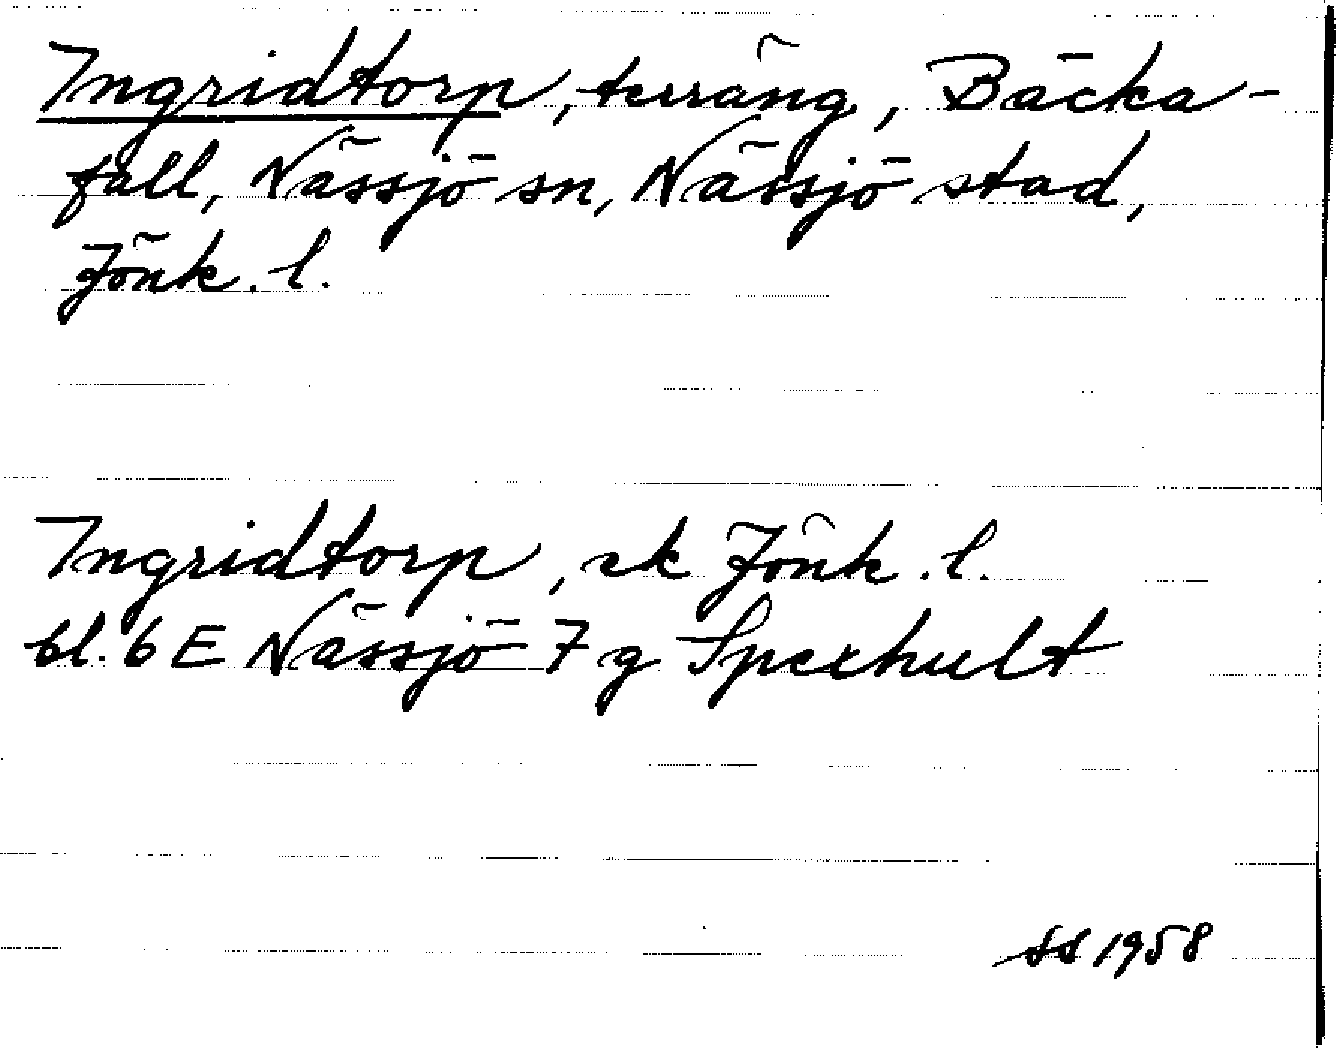 Ingridtorp, terräng, Bäcka-
fall, Nässjö sn, Nässjö stad,
Jönk. l.
Ingridtorp, ek Jönk. l.
bl. 6 E Nässjö 7 g Spexhult
SS 1958